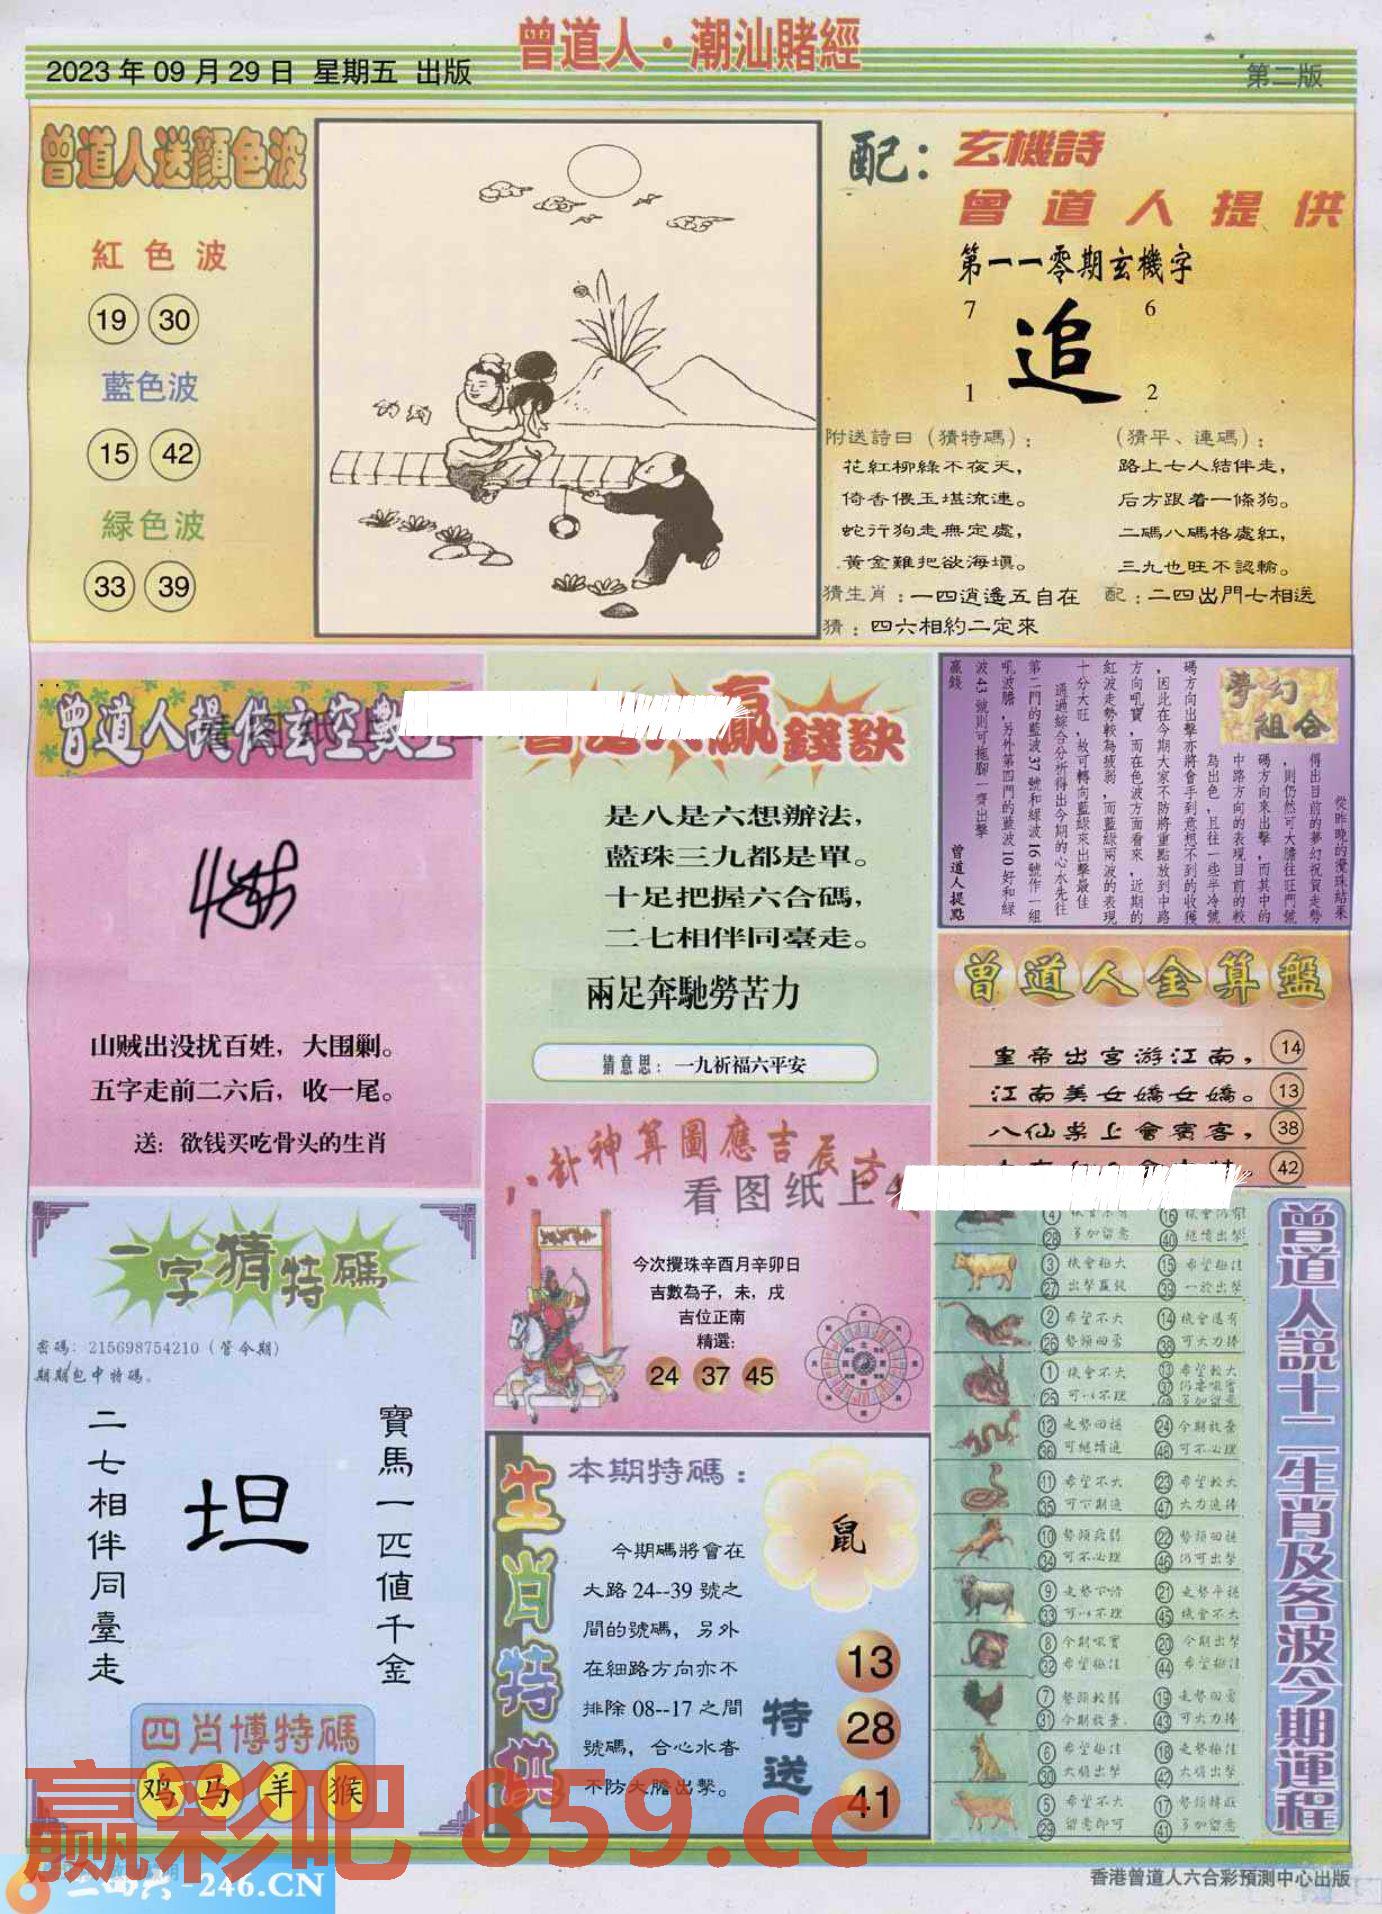 曾道人·潮汕賭經
2023年09月29日 星期五 出版
第二版
曾道人送顏色波
紅色波
19 30
藍色波
15 42
緑色波
33 39
配：玄機詩
曾道人提供
第一一零期玄機字
7 6
追
1 2
附送詩曰（猜特碼）：
花紅柳綠不夜天，
倚香偎玉堪流連。
蛇行狗走無定處，
黃金難把欲海填。
（猜平、連碼）：
路上七人結伴走，
后方跟着一條狗。
二碼八碼格處紅，
三九也旺不認輸。
猜生肖：一四逍遙五自在 配：二四出門七相送
猜：四六相約二定來
曾道人提供玄空數
山贼出没扰百姓，大围剿。
五字走前二六后，收一尾。
送：欲钱买吃骨头的生肖
贏錢訣
是八是六想辦法，
藍珠三九都是單。
十足把握六合碼，
二七相伴同臺走。
兩足奔馳勞苦力
猜意思：一九祈福六平安
夢幻
組合
從昨晚的攪珠結果
得出目前的夢幻祝賀走勢
，則仍然可大膽往旺門號
碼方向來出擊，而其中的
中路方向的表現目前的較
為出色，且往一些半冷號
碼方向出擊亦將會手到意想不到的收獲
，因此在今期大家不防將重點放到中路
方向吼寶，而在色波方面看來，近期的
紅波走勢較為疲弱，而藍綠兩波的表現
十分大旺，故可轉向藍綠來出擊最佳
通過綜合分析得出今期的心水先往
第二門的藍波37號和緑波16號作一組
吼波膽，另外第四門的藍波10好和緑
波43號則可拖腳一齊出擊
贏錢
曾道人提點
曾道人金算盤
皇帝出宮游江南， 14
江南美女嬌女嬌。 13
八仙桌上會賓客， 38
42
八卦神算圖應吉辰方
看图纸上
今次攪珠辛酉月辛卯日
吉數為子，未，戌
吉位正南
精選：
24 37 45
一字猜特碼
密碼：215698754210（管今期）
期期包中特碼。
寶馬一匹值千金
坦
二七相伴同臺走
四肖博特碼
鸡 马 羊 猴
生肖特供
本期特碼：
鼠
今期碼將會在
大路24--39號之
間的號碼，另外
在細路方向亦不
排除08--17之間
號碼，合心水者
不防大膽出擊。
特送
13
28
41
曾道人說十二生肖及各波今期運程
4 28 多加留意 16 機會仍有 40 繼續出擊
3 機會極大 27 出擊贏錢 15 希望極佳 39 一於出擊
2 希望不大 26 勢頭回勇 14 機會還有 38 可大力捧
1 機會不大 25 可以不理 13 希望較大
12 走勢回穩 36 可繼續追 24 今期放棄 48 可不必理
11 希望不大 35 可下期追 23 希望較大 47 大力追捧
10 勢頭疲弱 34 可不必理 22 勢頭回穩 46 仍可出擊
9 33 可以不理 21 走勢平穩 45 機會不大
8 今期吼寶 32 希望極佳 20 今期出擊 44 希望極佳
7 勢頭較弱 31 今期放棄 19 走勢回勇 43 可大力捧
6 希望極佳 30 大膽出擊 18 走勢極佳 42 大膽出擊
5 希望不大 29 留意即可 17 勢頭轉旺 41 多加留意
赢彩吧 859.cc
二四六-246.CN
香港曾道人六合彩預測中心出版